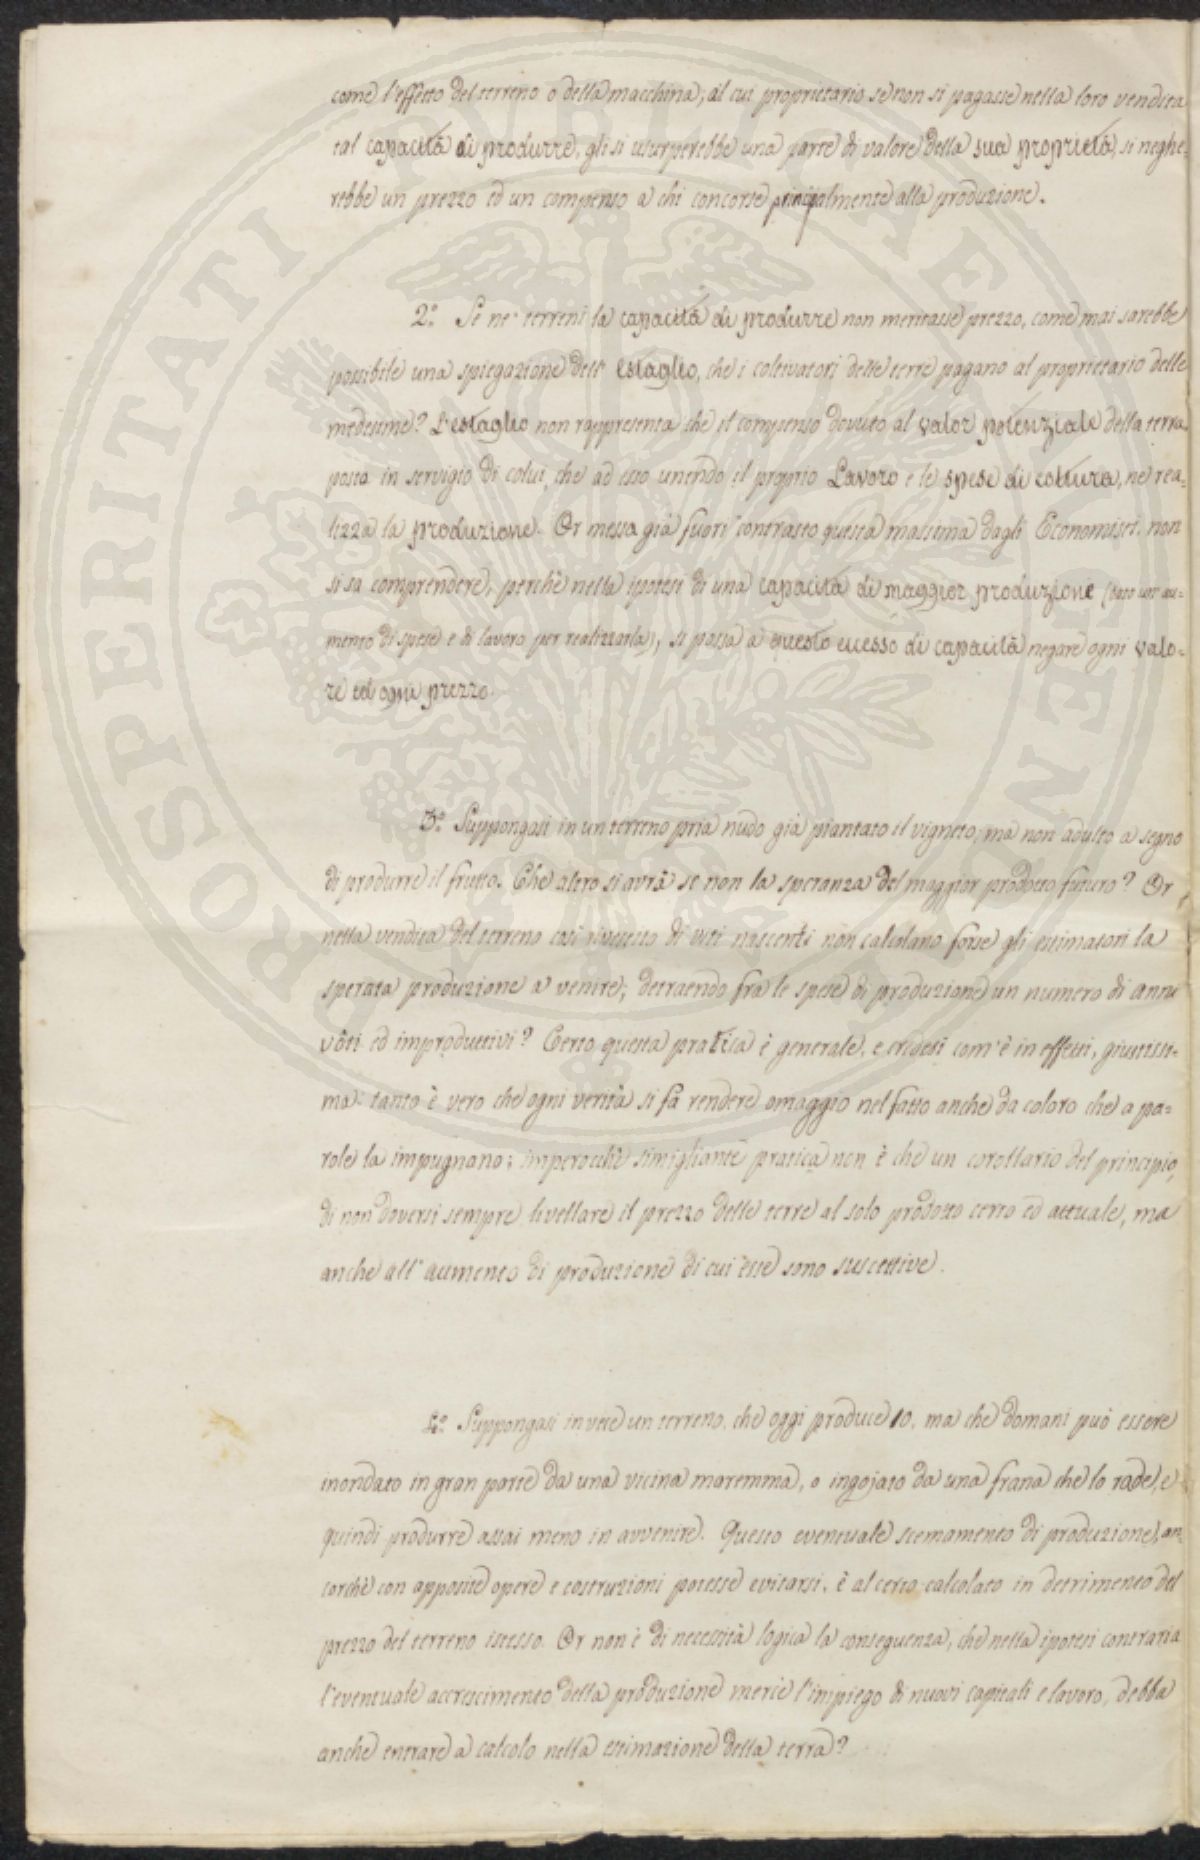 come l'effetto del terreno o della macchina; al cui proprietario se non si pagasse nella loro vendita
tal capacità di produrre, gli si usurperebbe una parte di valore della sua proprietà, si neghe-
rebbe un prezzo ed un compenso a chi concorse principalmente alla produzione.
2.° Se ne' terreni la capacità di produrre non meritasse prezzo, come mai sarebbe
possibile una spiegazione dell' estaglio, che i coltivatori delle terre pagano al proprietario delle
medesime? L'estaglio non rappresenta che il compenso dovuto al valor potenziale della terra
posta in servigio di colui, che ad esso unendo il proprio Lavoro e le spese di coltura, ne rea-
lizza la produzione. Or messa già fuori contrasto questa massima dagli Economisti, non
si sa comprendere, perchè nella ipotesi di una capacità di maggior produzione (dato un au-
mento di spese e di lavoro per realizzarla), si possa a questo eccesso di capacità negare ogni valo-
re ed ogni prezzo.
3.° Suppongasi in un terreno pria nudo già piantato il vigneto, ma non adulto a segno
di produrre il frutto. Che altro si avrà se non la speranza del maggior prodotto futuro? Or
nella vendita del terreno così rivestito di viti nascenti non calcolano forse gli estimatori la
sperata produzione a venire; detraendo fra le spese di produzione un numero di anni
vôti ed improduttivi? Certo questa pratica è generale, e credesi com'è in effetti, giustissi-
ma: tanto è vero che ogni verità si fa rendere omaggio nel fatto anche da coloro che a pa-
role la impugnano; imperocchè simigliante pratica non è che un corollario del principio,
di non doversi sempre livellare il prezzo delle terre al solo prodotto certo ed attuale, ma
anche all' aumento di produzione di cui esse sono suscettive.
4.° Suppongasi invece un terreno, che oggi produce 10, ma che domani può essere
inondato in gran parte da una vicina maremma, o ingojato da una frana che lo rade, e
quindi produrre assai meno in avvenire. Questo eventuale scemamento di produzione, an-
corchè con apposite opere e costruzioni potesse evitarsi, è al certo calcolato in detrimento del
prezzo del terreno istesso. Or non è di necessità logica la conseguenza, che nella ipotesi contraria
l'eventuale accrescimento della produzione mercè l'impiego di nuovi capitali e lavoro, debba
anche entrare a calcolo nella estimazione della terra?
PROSPERITATI PUBLICAE AUGENDAE